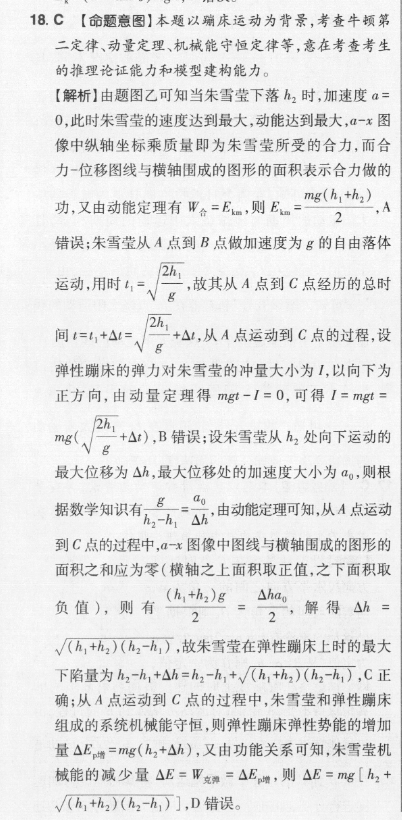 18. C 【命题意图】本题以蹦床运动为背景,考查牛顿第
二定律、动量定理、机械能守恒定律等,意在考查考生
的推理论证能力和模型建构能力。
【解析】由题图乙可知当朱雪莹下落 h₂ 时,加速度 a=
0,此时朱雪莹的速度达到最大,动能达到最大,a-x 图
像中纵轴坐标乘质量即为朱雪莹所受的合力,而合
力-位移图线与横轴围成的图形的面积表示合力做的
功,又由动能定理有 W合=Ekm,则 Ekm=mg(h₁+h₂)/2,A
错误;朱雪莹从 A 点到 B 点做加速度为 g 的自由落体
运动,用时 t₁=√(2h₁/g),故其从 A 点到 C 点经历的总时
间 t=t₁+Δt=√(2h₁/g)+Δt,从 A 点运动到 C 点的过程,设
弹性蹦床的弹力对朱雪莹的冲量大小为 I,以向下为
正方向,由动量定理得 mgt-I=0,可得 I=mgt=
mg(√(2h₁/g)+Δt),B 错误;设朱雪莹从 h₂ 处向下运动的
最大位移为 Δh,最大位移处的加速度大小为 a₀,则根
据数学知识有 g/(h₂-h₁)=a₀/Δh,由动能定理可知,从 A 点运动
到 C 点的过程中,a-x 图像中图线与横轴围成的图形的
面积之和应为零(横轴之上面积取正值,之下面积取
负值),则有 (h₁+h₂)g/2=Δha₀/2,解得 Δh=
√((h₁+h₂)(h₂-h₁)),故朱雪莹在弹性蹦床上时的最大
下陷量为 h₂-h₁+Δh=h₂-h₁+√((h₁+h₂)(h₂-h₁)),C 正
确;从 A 点运动到 C 点的过程中,朱雪莹和弹性蹦床
组成的系统机械能守恒,则弹性蹦床弹性势能的增加
量 ΔEp增=mg(h₂+Δh),又由功能关系可知,朱雪莹机
械能的减少量 ΔE=W克弹=ΔEp增,则 ΔE=mg[h₂+
√((h₁+h₂)(h₂-h₁))],D 错误。